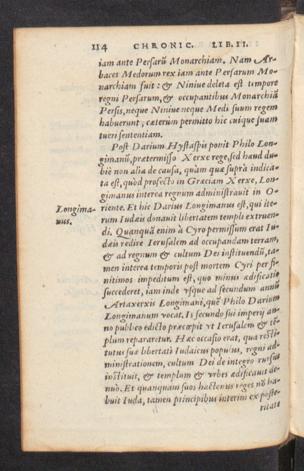 114 CHRONIC. LIB. II.
iam ante Persarũ Monarchiam. Nam Ar-
baces Medorum rex iam ante Persarum Mo-
narchiam fuit: & Niniue deleta est tempore
regni Persarum, & occupantibus Monarchiã
Persis, neque Niniue neque Medi suum regem
habuerunt, cæterùm permitto hic cuique suam
tueri sententiam.
Post Darium Hystaspis ponit Philo Lon-
gimanũ, prætermisso Xerxe rege, sed haud du-
biè non alia de causa, quàm quæ suprà indica-
ta est, quòd profecto in Græciam Xerxe, Lon-
gimanus interea regnum administrauit in O-
riente. Et hic Darius Longimanus est, qui ite-
Longima-
nus.
rum Iudæis donauit libertatem templi extruen-
di. Quanquã enim à Cyro permissum erat Iu-
dæis redire Ierusalem ad occupandam terram,
& ad regnum & cultum Dei instituendũ, ta-
men interea temporis post mortem Cyri per fi-
nitimos impeditum est, quo minus ædificatio
succederet, iam inde vsque ad secundum annũ
Artaxerxis Longimani, quẽ Philo Darium
Longimanum vocat. Is secundo sui imperij an-
no publico edicto præcæpit vt Ierusalem & tẽ-
plum repararetur. Hac occasio erat, qua resti-
tutus suæ libertati Iudaicus populus, regni ad-
ministrationem, cultum Dei de integro rursus
instituit, & templum & vrbes ædificauit de-
nuò. Et quanquam suos hactenus reges nõ ha-
buit Iuda, tamen principibus interim ex poste-
ritate